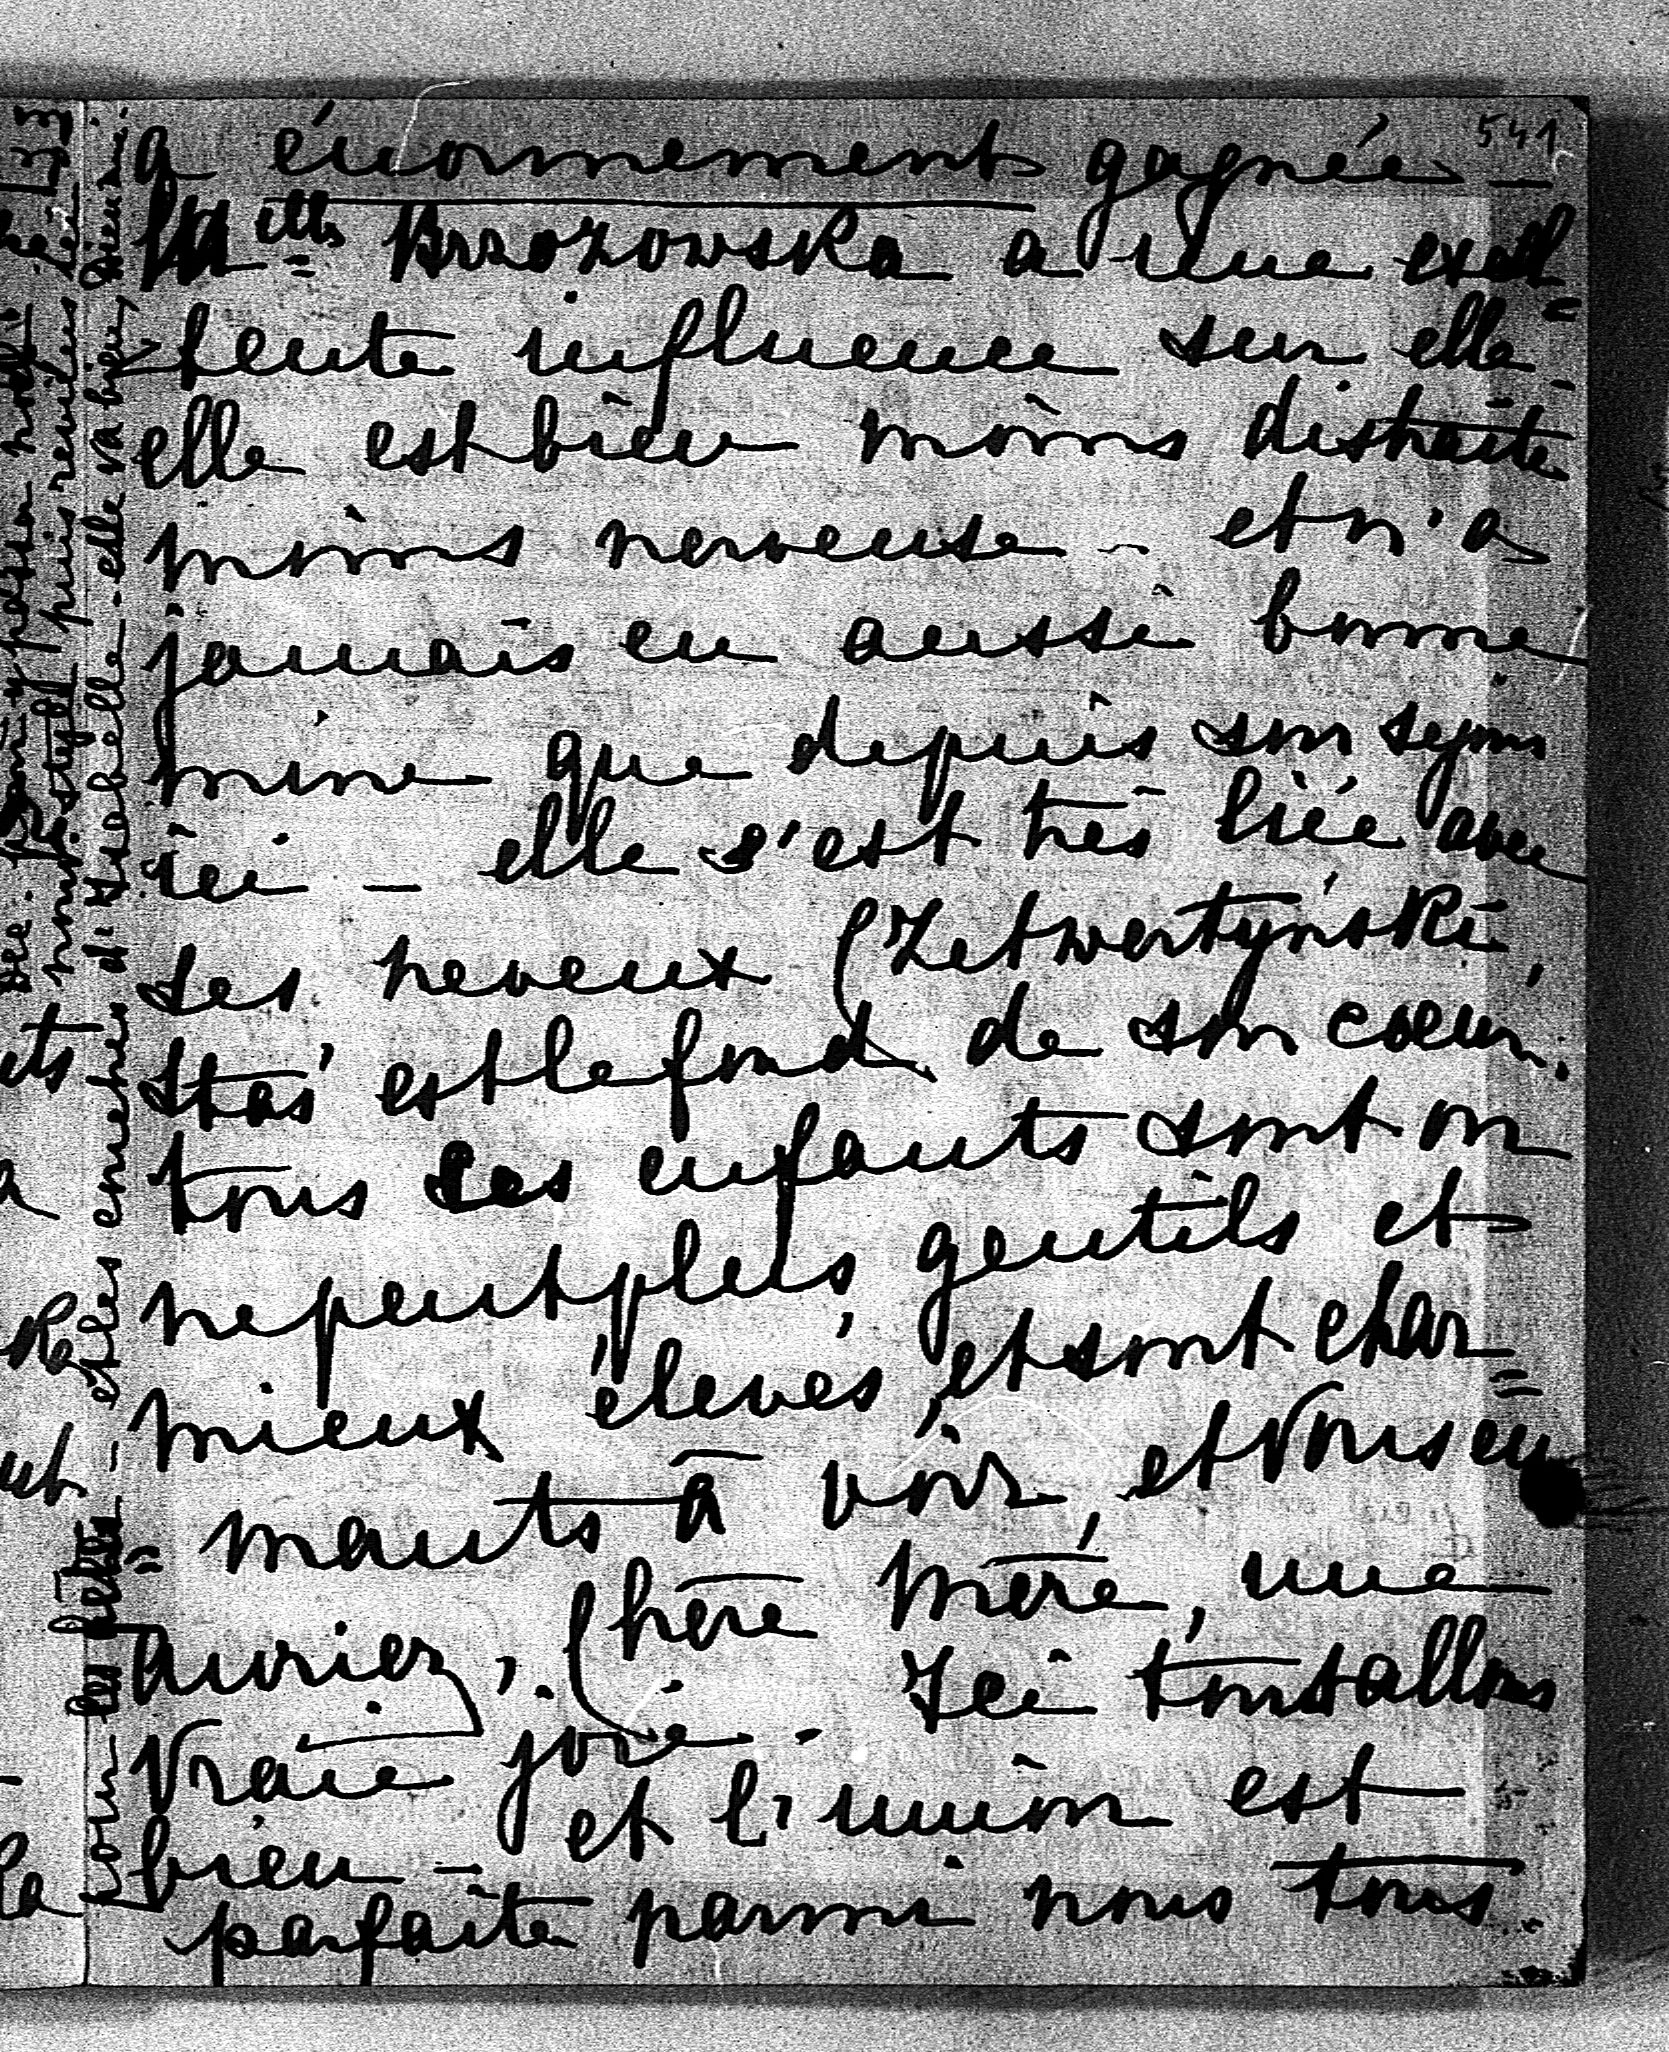 541
a énormement gagnée —
Mlle Brzozowska a une excel=
lente influence sur elle -
elle est bien moins distraite
moins nerveuse - et n'a
jamais eu aussi bonne
mine que depuis son séjour
ici - elle s'est très liée avec
ses neveux Czetwertyński,
Staś est le fond de son coeur.
tous ces enfants sont on
ne peut plus gentils et
mieux élevés, et sont char=
mants à voir, et Vous en
auriez, Chère Mère, une
Vraie joie. Ici tous allons
bien - et l'union est
parfaite parmi nous tous.
pour les fêtes - et les couches d'Isabelle - elle va bien,